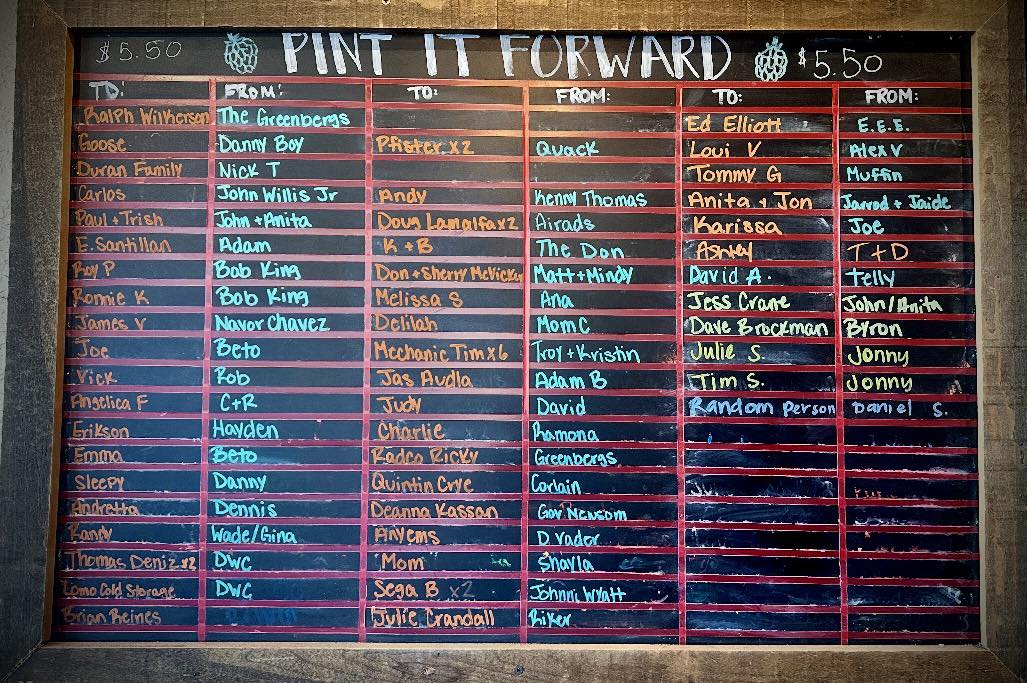 $5.50 PINT IT FORWARD $5.50
TO: FROM: TO: FROM: TO: FROM:
Ralph Wilkerson The Greenbergs Ed Elliott E.E.E.
Goose Danny Boy Pfister x2 Quack Loui V Alex V
Duran Family Nick T Tommy G Muffin
Carlos John Willis Jr Andy Kenny Thomas Anita + Jon Jarrod + Jaide
Paul + Trish John + Anita Doug Lamalfa x2 Airads Karissa Joe
E. Santillan Adam K + B The Don Ashley T + D
Roy P Bob King Don + Sherry McVicker Matt + Mindy David A. Telly
Ronnie K Bob King Melissa S Ana Jess Crane John/Anita
James V Navor Chavez Delilah Mom C Dave Brockman Byron
Joe Beto Mechanic Tim x6 Troy + Kristin Julie S. Jonny
Vick Rob Jas Audla Adam B Tim S. Jonny
Angelica F C+R Judy David Random Person Daniel S.
Erikson Hayden Charlie Ramona
Emma Beto Radco Ricky Greenbergs
Sleepy Danny Quintin Crye Corlain
Andretta Dennis Deanna Kassan Gav Newsom
Randy Wade/Gina D. Vador
Thomas Deniz x2 DWC Mom Shayla
Lomo Cold Storage DWC Sega B x2 Johnny Wyatt
Brian Reines Julie Crandall Riker